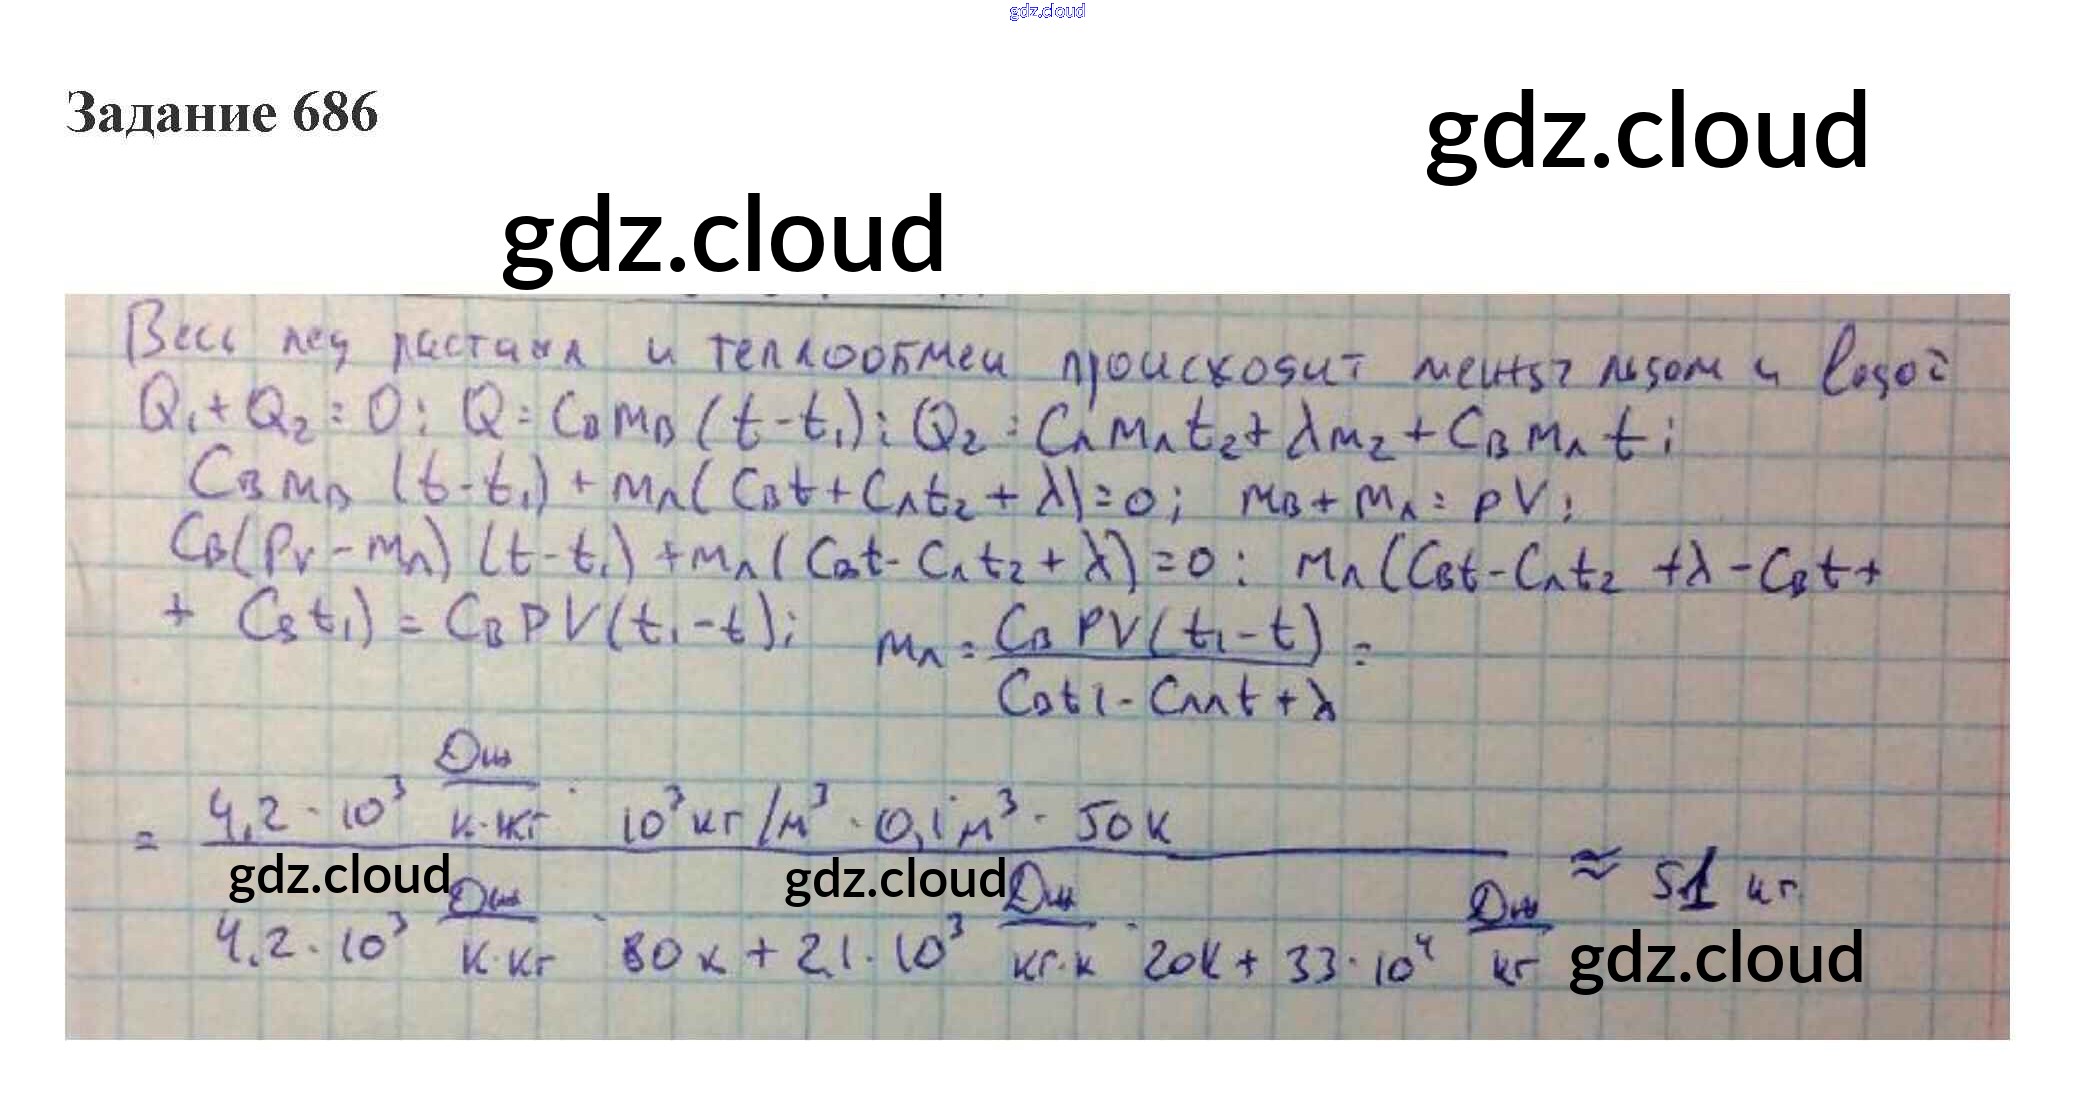 gdz.cloud
Задание 686
gdz.cloud
gdz.cloud
Весь лед растаял и теплообмен происходит между льдом и водой
Q₁ + Q₂ = 0; Q = CвMв (t - t₁); Q₂ = CлMлt₂ + λM₂ + CвMлt;
CвMв (t - t₁) + Mл(Cвt + Cлt₂ + λ) = 0; Mв + Mл = ρV;
Cв(ρv - Mл) (t - t₁) + Mл(Cвt - Cлt₂ + λ) = 0; Mл(Cвt - Cлt₂ + λ - Cвt +
+ Cвt₁) = CвPV(t₁ - t); Mл = CвPV(t₁ - t) / Cвt1 - Cллt + λ =
= 4,2 · 10³ Дж/К·кг · 10³ кг/м³ · 0,1 м³ · 50К / 4,2 · 10³ Дж/К·кг · 80К + 2,1 · 10³ Дж/кг·К · 20К + 33 · 10⁴ Дж/кг ≈ 51 кг
gdz.cloud
gdz.cloud
gdz.cloud